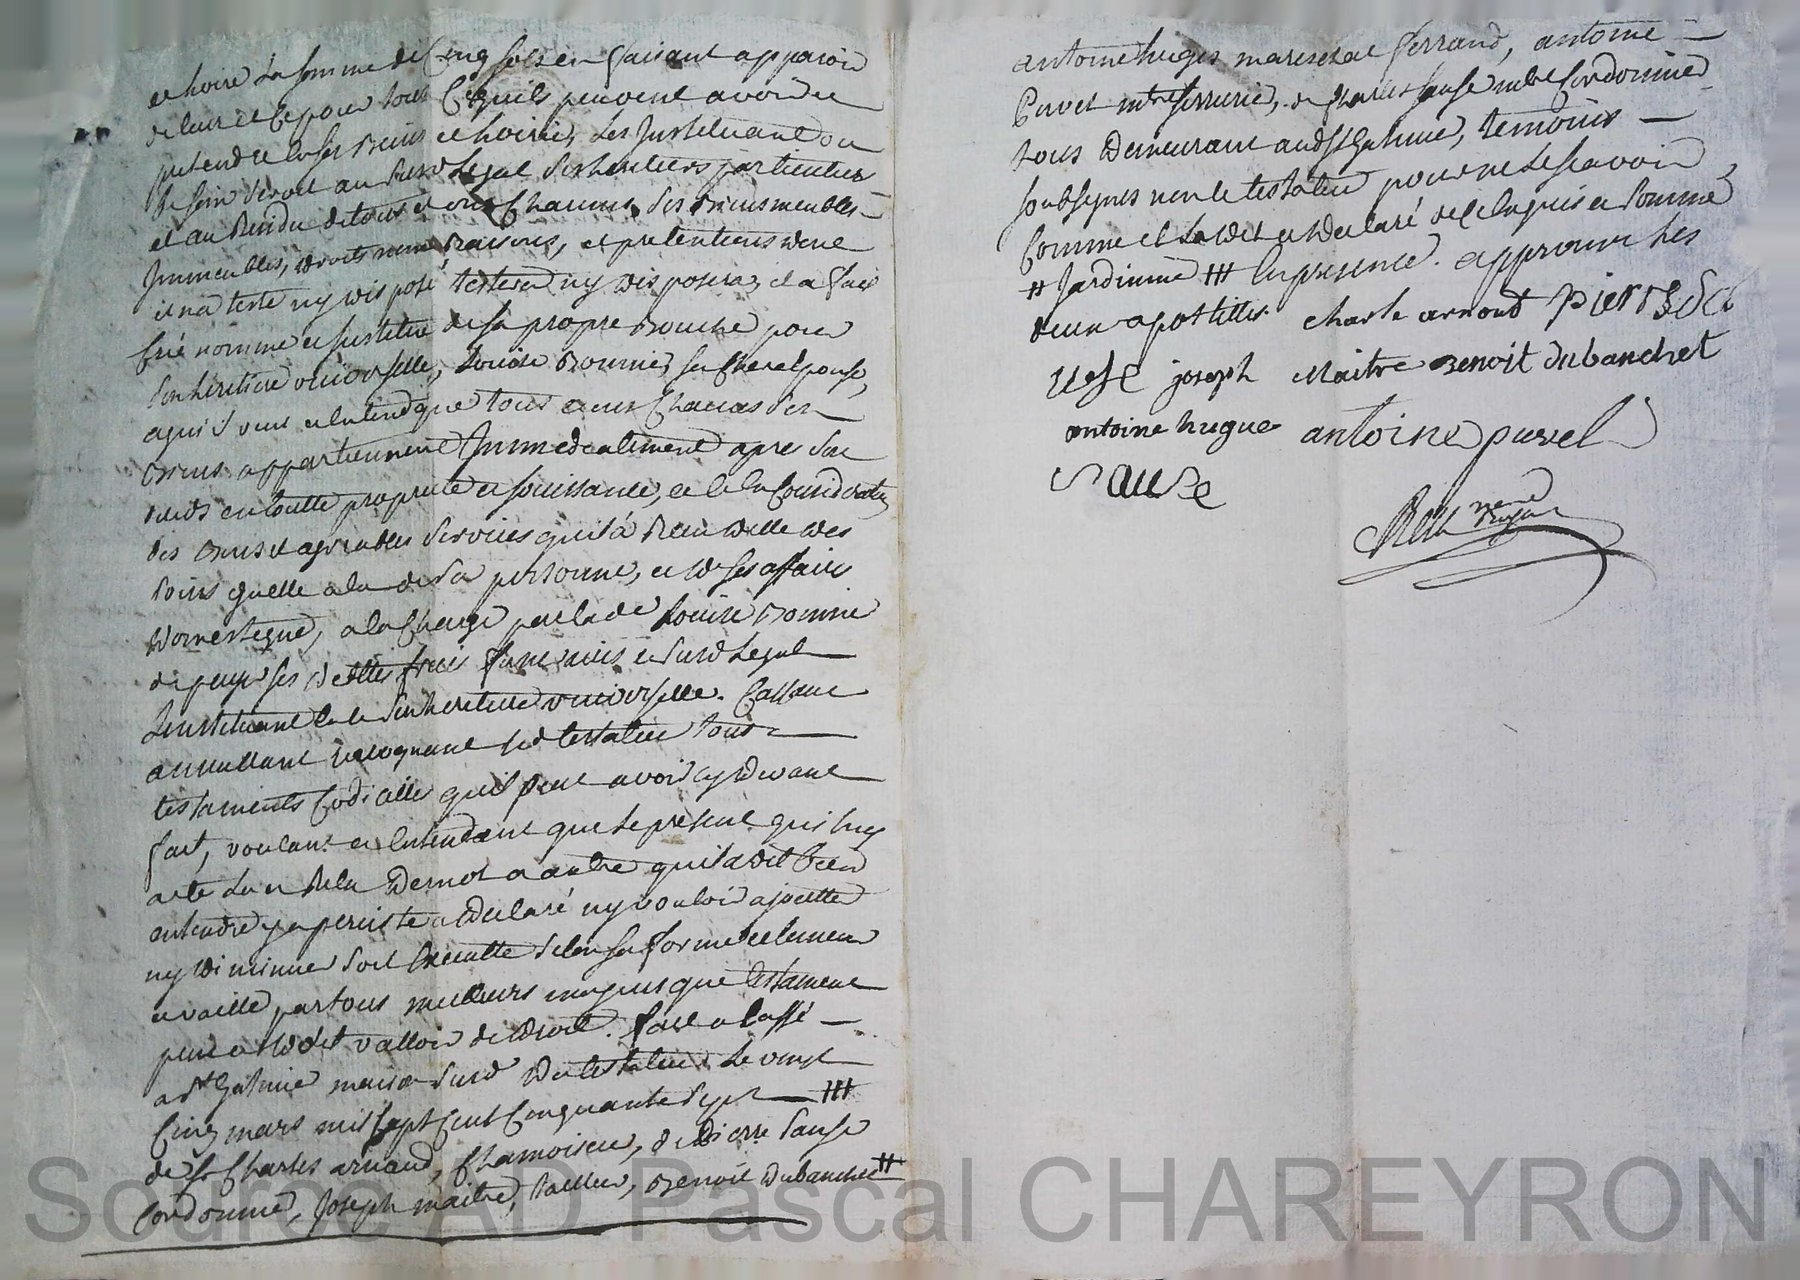 et hoirie la somme de Cinq sols en faisant apparoir
de leur et ce pour tous Ce quils peuvent avoir et
pretendre en ses Biens et hoirie, les Instituant
ses heritiers particuliers
et au Residu de tous et uns Chacuns ses Biens meubles
Immeubles, droits noms, Raisons, et pretentions dont
il na testé ny disposé testera ny disposera, il a fait
Crée nomme et Institue de sa propre Bouche pour
son heritiere universelle, Louise Bonnier sa Chere Epouse,
a qui il veut et entend que tous et uns Chacuns ses
Biens appartiennent Immediatement apres son
deceds en toutte propriete et Jouissance, et en Consideration
des Bons et agreables services quil a Receu delle des
soins quelle a eu de sa personne, et de ses affaires
domestique, a la Charge par lade Louise Bonnier
de payer ses dettes frais funeraires et susd Legat
Linstituant telle son heritiere universelle. Cassant
annullant revoquant led testateur tous
testaments Codicilles quil peut avoir cy devant
fait, voulant et Entendant que le present qui luy
a ete lu et Relu de mot a autre quil a dit Bien
entendre y a persiste et declaré ny vouloir ajoutter
ny diminuer soit Executte selon sa forme et teneur
et vaille par tous meilleurs moyens que testament
peut et doit valloir de droit. fait et passé
a St Galmier maison susd du testateur le vingt
Cinq mars mil sept Cent Cinquante sept ⧻
de Sr Charles arnaud, Chamoiseur, de Pierre Sause
Cordonnier, Joseph maitre, tailleur, Benoit Dubanchet #
antoine huges marechal ferrand, antoine
Puvel mtre serrurier, de Charles sause mtre Cordonnier
tous demeurant aud St Galmier, temoins
soubsignes non le testateur pour ne le scavoir
Comme il la dit et declaré de ce Enquis et sommé
# Jardinier ⧻ En presence. approuvé les
deux apostilles. charle arnoud pier
joseph Maitre Benoit dubanchet
antoine hugue antoine puvel
sause